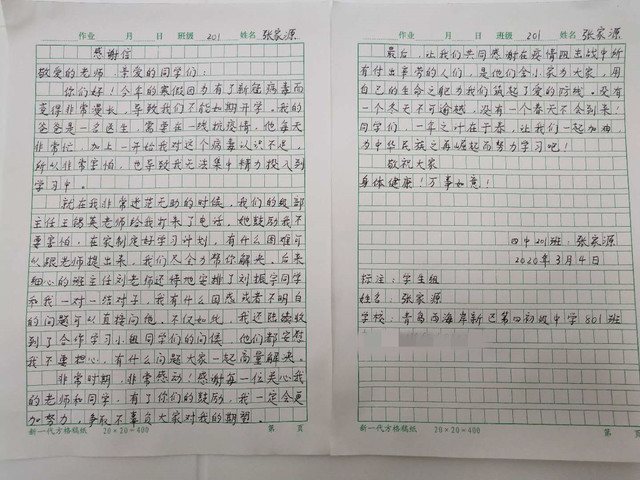 作业 月 日 班级 201 姓名 张家源
感谢信
敬爱的老师、亲爱的同学们：
你们好！今年的寒假因为有了新冠病毒而
变得非常漫长，导致我们不能如期开学。我的
爸爸是一名医生，常要在一线抗疫情，他每天
非常忙，加上一开始我对这个病毒认识不足，
所以非常害怕，也导致我无法集中精力投入到
学习中。
就在我非常迷茫无助的时候，我们的级部
主任王锡英老师给我打来了电话，她鼓励我不
要害怕，在家制定好学习计划，有什么困难可
以跟老师提出来，我们尽全力帮你解决。后来
细心的班主任刘老师还特地安排了刘振宇同学
和我一对一结对子，我有什么困惑或者不明白
的问题可以直接问他。不仅如此，我还陆续收
到了合作学习小组同学们的问候，他们都安慰
我不要担心，有什么问题大家一起商量解决。
非常时期，非常感动！感谢每一位关心我
的老师和同学，有了你们的鼓励，我一定会更
加努力，争取不辜负大家对我的期望。
新一代方格稿纸 20×20=400 第 页
作业 月 日 班级 201 姓名 张家源
最后，让我们共同感谢在疫情阻击战中所
有付出辛劳的人们，是他们舍小家为大家，用
自己的生命之躯为我们筑起了爱的防线。没有
一个冬天不可逾越，没有一个春天不会到来！
同学们，一年之计在于春，让我们一起加油，
为中华民族之再崛起而努力学习吧！
敬祝大家
身体健康！万事如意！
四中201班：张家源
2020年3月4日
标注：学生组
姓名：张家源
学校：青岛西海岸新区第四初级中学801班
新一代方格稿纸 20×20=400 第 页